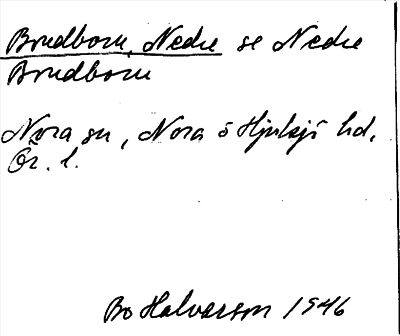 Brudborn, Nedre se Nedre
Brudborn
Nora sn, Nora o Hjulsjö hd,
Ör. l.
Bo Halvarson 1946